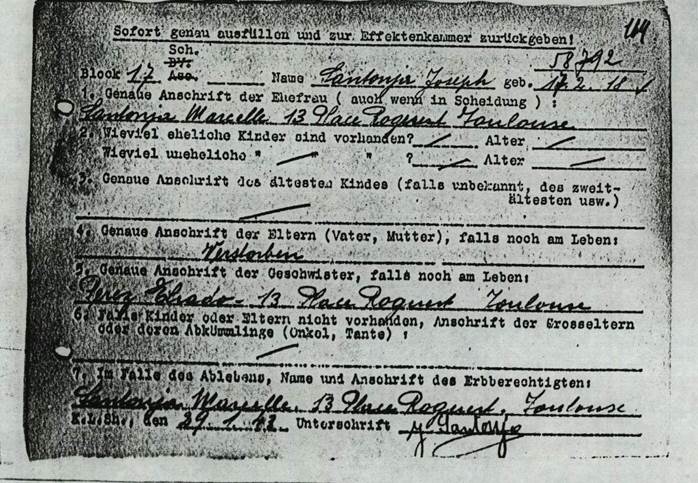 114
Sofort genau ausfüllen und zur Effektenkammer zurückgeben!
Sch. 58792
BV.
Block 17 Aso. Name Santonja Joseph geb. 17.2. 18
1. Genaue Anschrift der Ehefrau ( auch wenn in Scheidung ) :
Santonja Marcelle 13 Place Roquest Toulouse
2. Wieviel eheliche Kinder sind vorhanden? / Alter /
Wieviel uneheliche " / " " ? / Alter /
3. Genaue Anschrift des ältesten Kindes (falls unbekannt, des zweit-
ältesten usw.)
4. Genaue Anschrift der Eltern (Vater, Mutter), falls noch am Leben:
Verstorben
5. Genaue Anschrift der Geschwister, falls noch am Leben:
Perez - 13 Place Roquest Toulouse
6. Falls Kinder oder Eltern nicht vorhanden, Anschrift der Grosseltern
oder deren Abkömmlinge (Onkel, Tante) :
7. Im Falle des Ablebens, Name und Anschrift des Erbberechtigten:
Santonja Marcelle. 13 Place Roquest. Toulouse
K.L.Sh., den 29.1. Unterschrift J Santonja